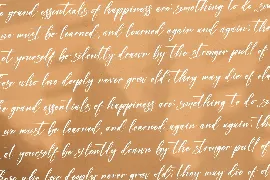 e grand essentials of happiness are: something to do, som
ve must be learned, and learned again and again; th
et yourself be silently drawn by the stranger pull of
ose who love deeply never grow old; they may die of ol
he grand essentials of happiness are: something to do, s
ve must be learned, and learned again and again; th
et yourself be silently drawn by the stranger pull of
hose who love deeply never grow old; they may die of